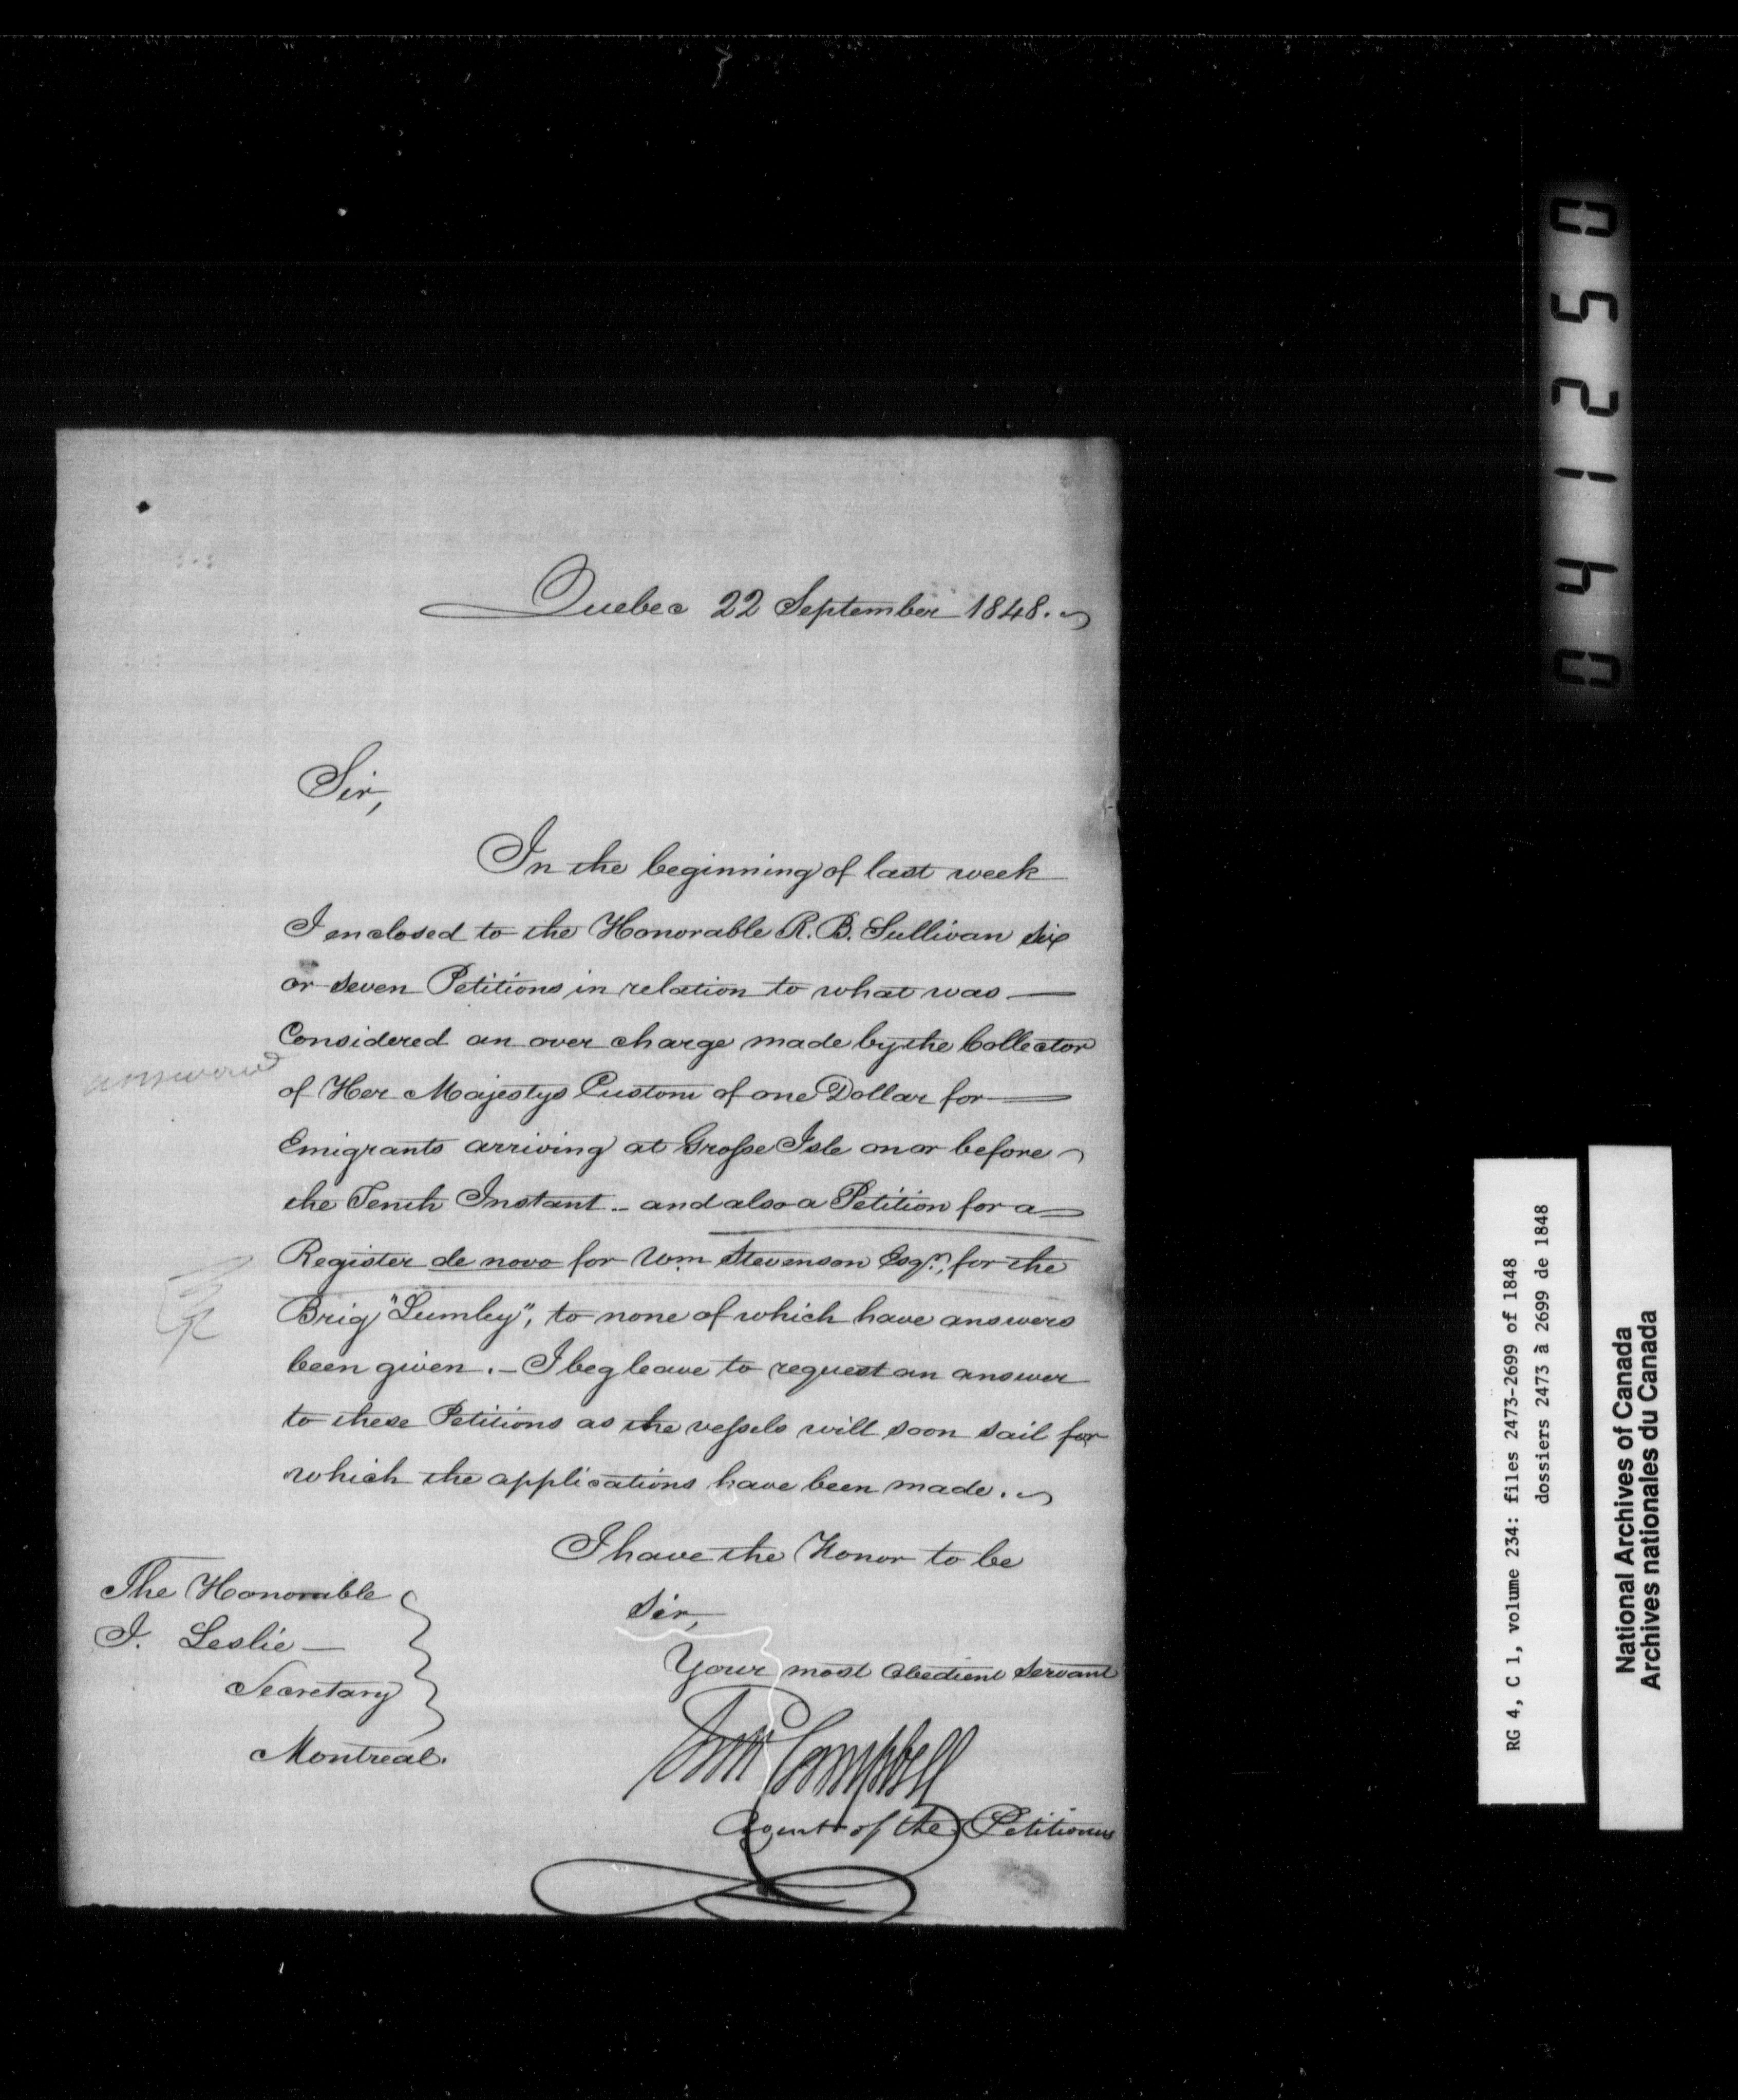 Quebec 22 September 1848.
Sir,
In the beginning of last week
I enclosed to the Honorable R. B. Sullivan six
or seven Petitions in relation to what was —
Considered an over charge made by the Collector
answered
of Her Majestys Custom of one Dollar for —
Emigrants arriving at Grosse Isle on or before
the Tenth Instant – and also a Petition for a
Register de novo for Wm Stevenson Esqr., for the
Brig "Lumley", to none of which have answers
been given. – I beg leave to request an answer
to these Petitions as the vessels will soon sail for
which the applications have been made.
I have the Honor to be
Sir,
Your most Obedient Servant
Campbell
Agent of the Petitioners
The Honorable
I. Leslie —
Secretary
Montreal.
041250
RG 4, C 1, volume 234: files 2473-2699 of 1848
dossiers 2473 à 2699 de 1848
National Archives of Canada
Archives nationales du Canada